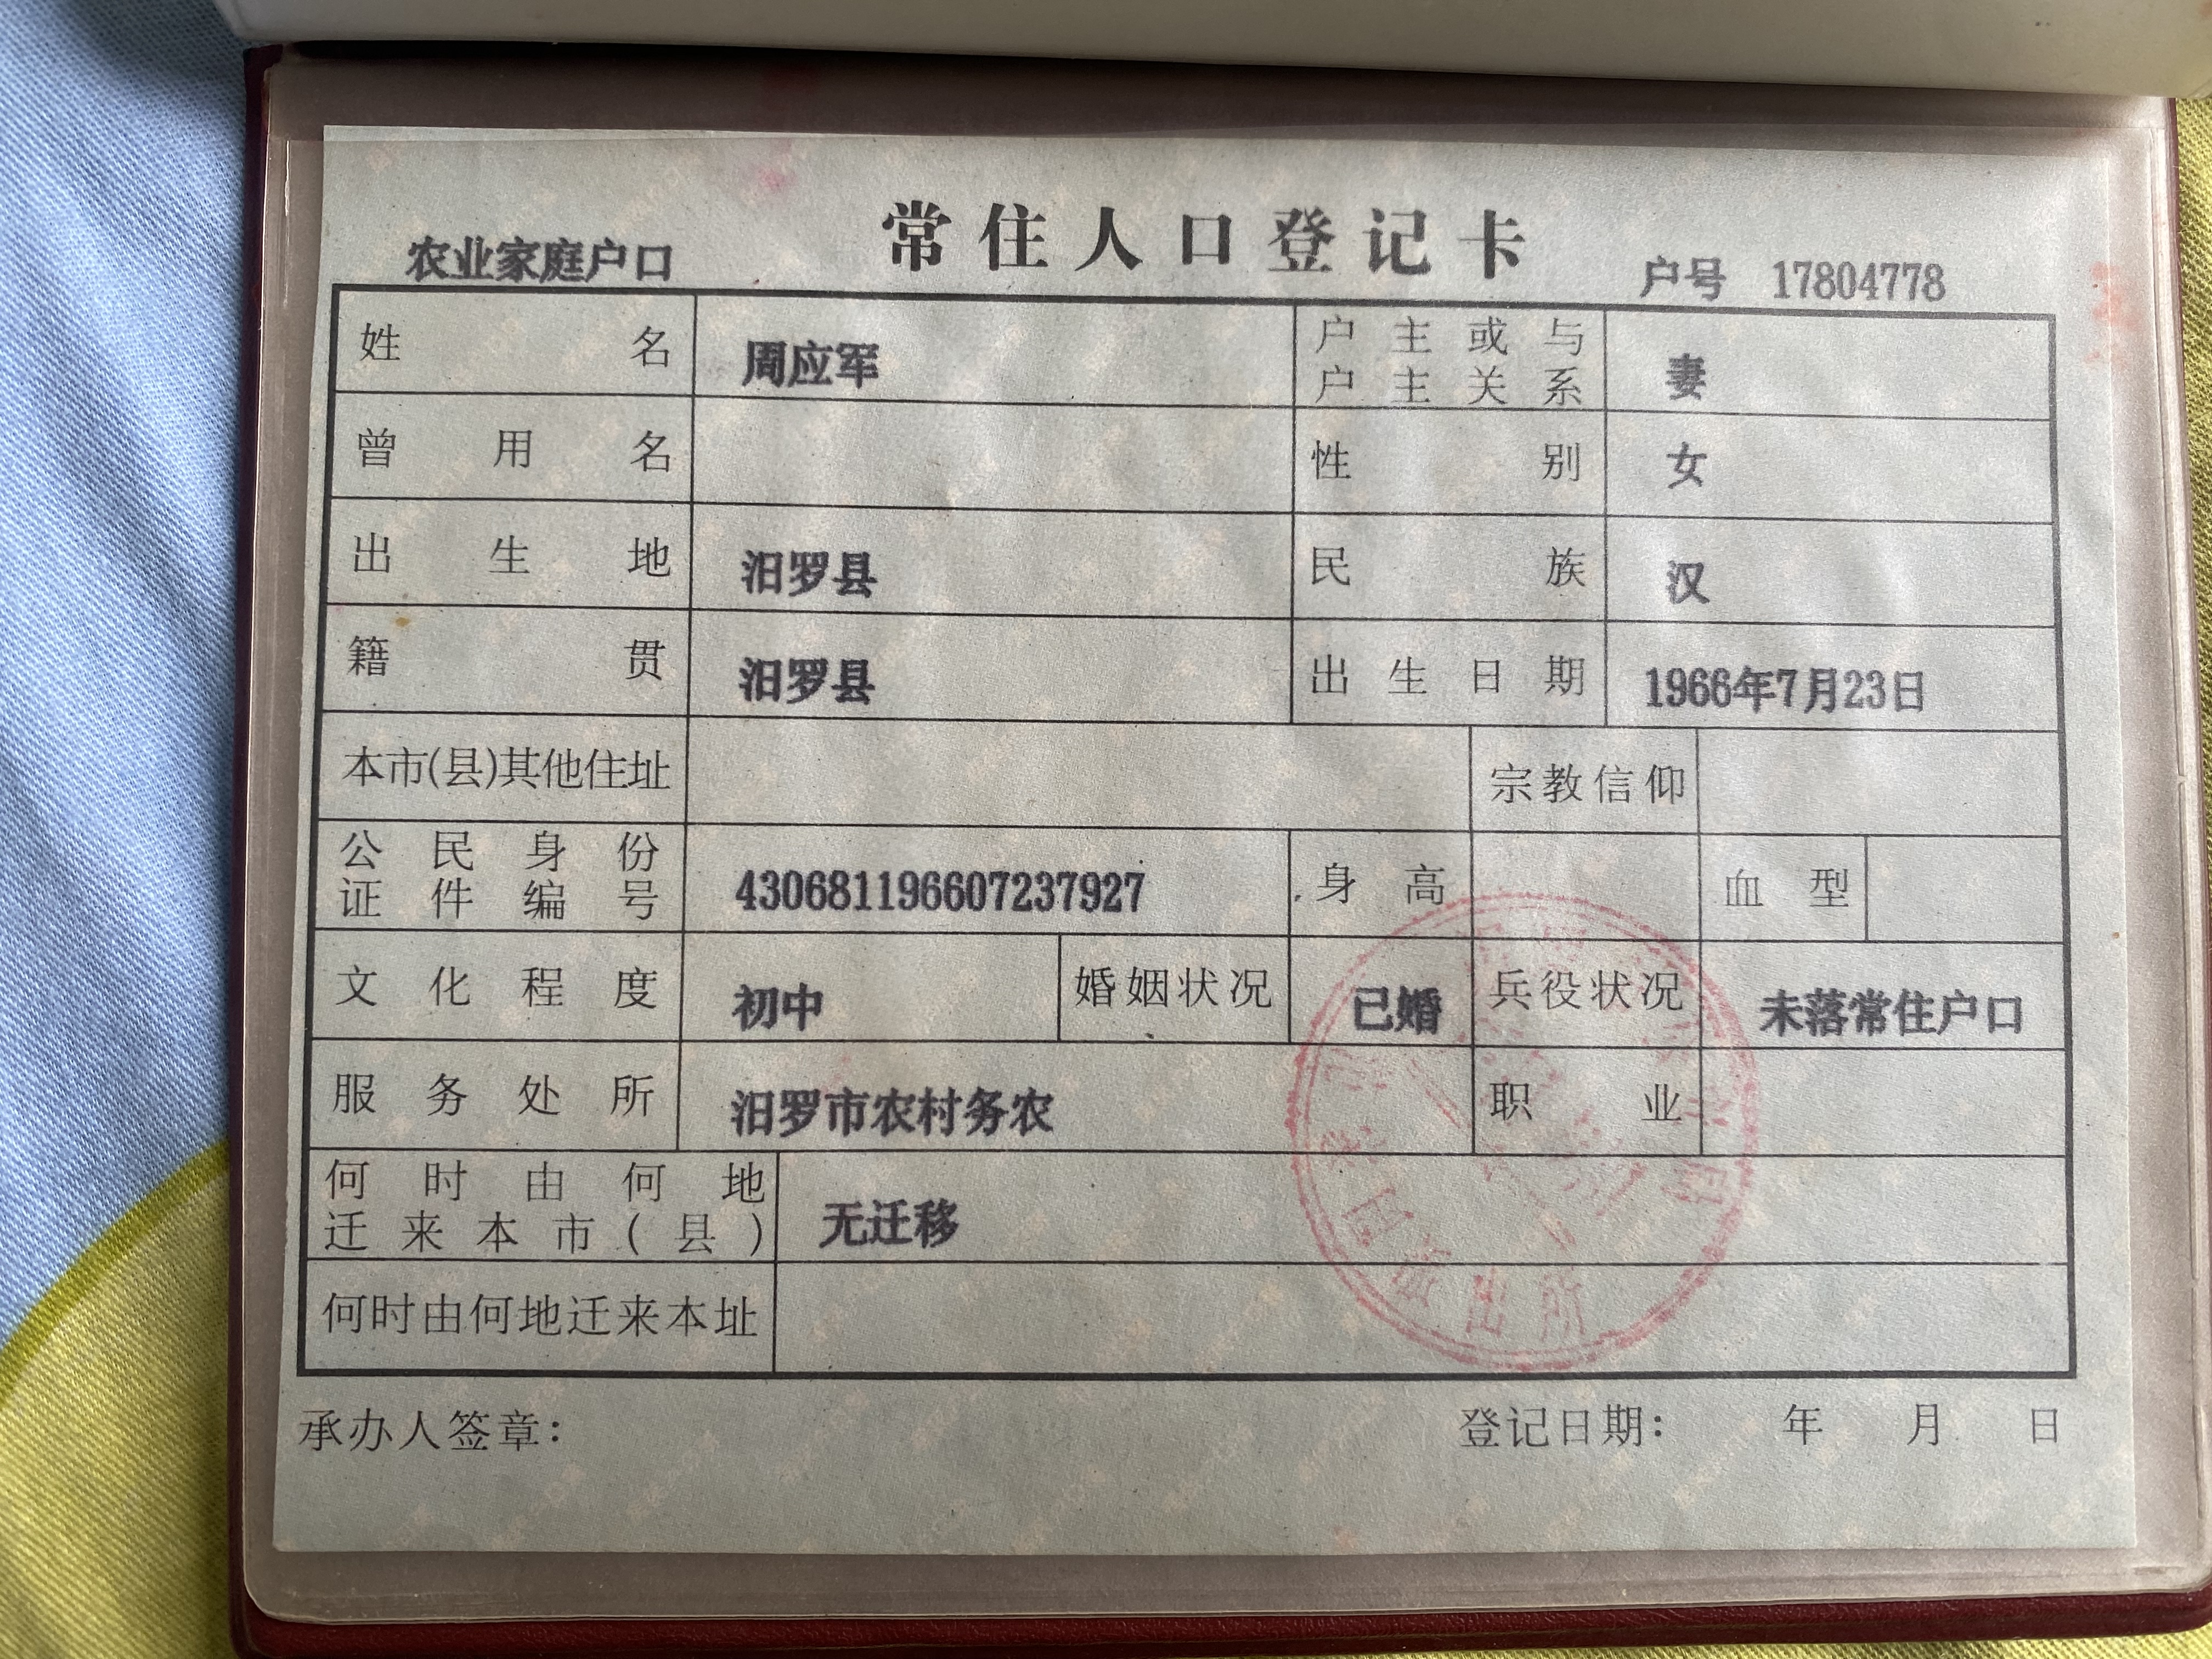 常住人口登记卡
农业家庭户口
户号 17804778
姓名 周应军 户主或与户主关系 妻
曾用名 性别 女
出生地 汨罗县 民族 汉
籍贯 汨罗县 出生日期 1966年7月23日
本市(县)其他住址 宗教信仰
公民身份证件编号 430681196607237927 身高 血型
文化程度 初中 婚姻状况 已婚 兵役状况 未落常住户口
服务处所 汨罗市农村务农 职业
何时由何地迁来本市(县) 无迁移
何时由何地迁来本址
派出所
承办人签章: 登记日期: 年 月 日